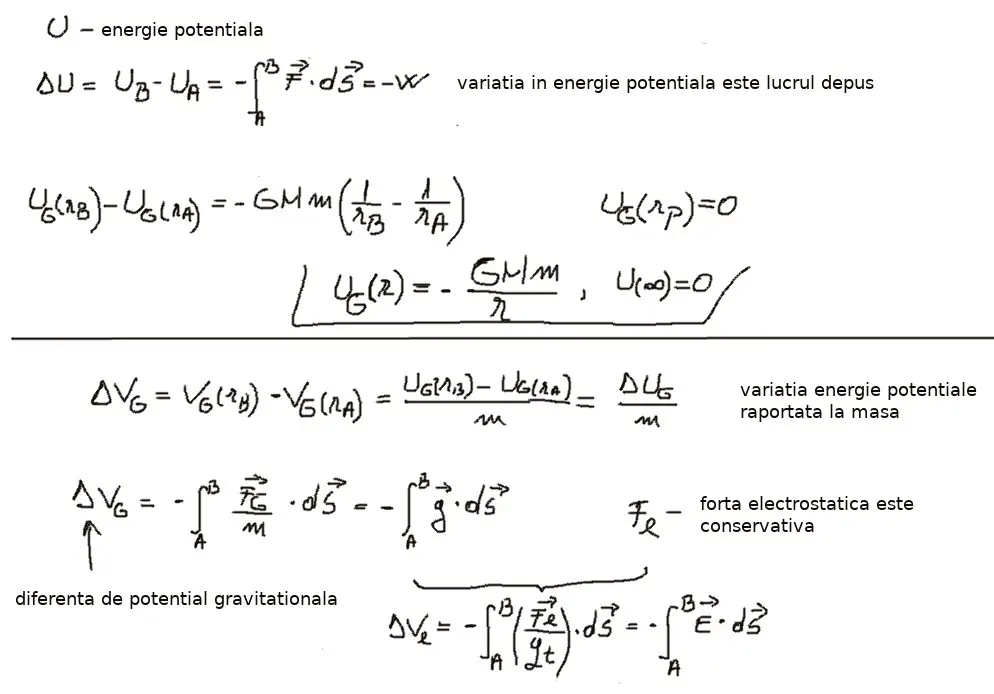 U – energie potentiala
ΔU = U_B - U_A = - ∫_A^B F⃗ · ds⃗ = -W variatia in energie potentiala este lucrul depus
U_G(r_B) - U_G(r_A) = - GMm (1/r_B - 1/r_A) U_G(r_p) = 0
U_G(r) = - GMm/r , U(∞) = 0
ΔV_G = V_G(r_B) - V_G(r_A) = (U_G(r_B) - U_G(r_A))/m = ΔU_G/m variatia energie potentiale
raportata la masa
ΔV_G = - ∫_A^B F⃗_G/m · ds⃗ = - ∫_A^B g⃗ · ds⃗ F_e – forta electrostatica este
conservativa
diferenta de potential gravitationala
ΔV_e = - ∫_A^B (F⃗_e/q_t) · ds⃗ = - ∫_A^B E⃗ · ds⃗